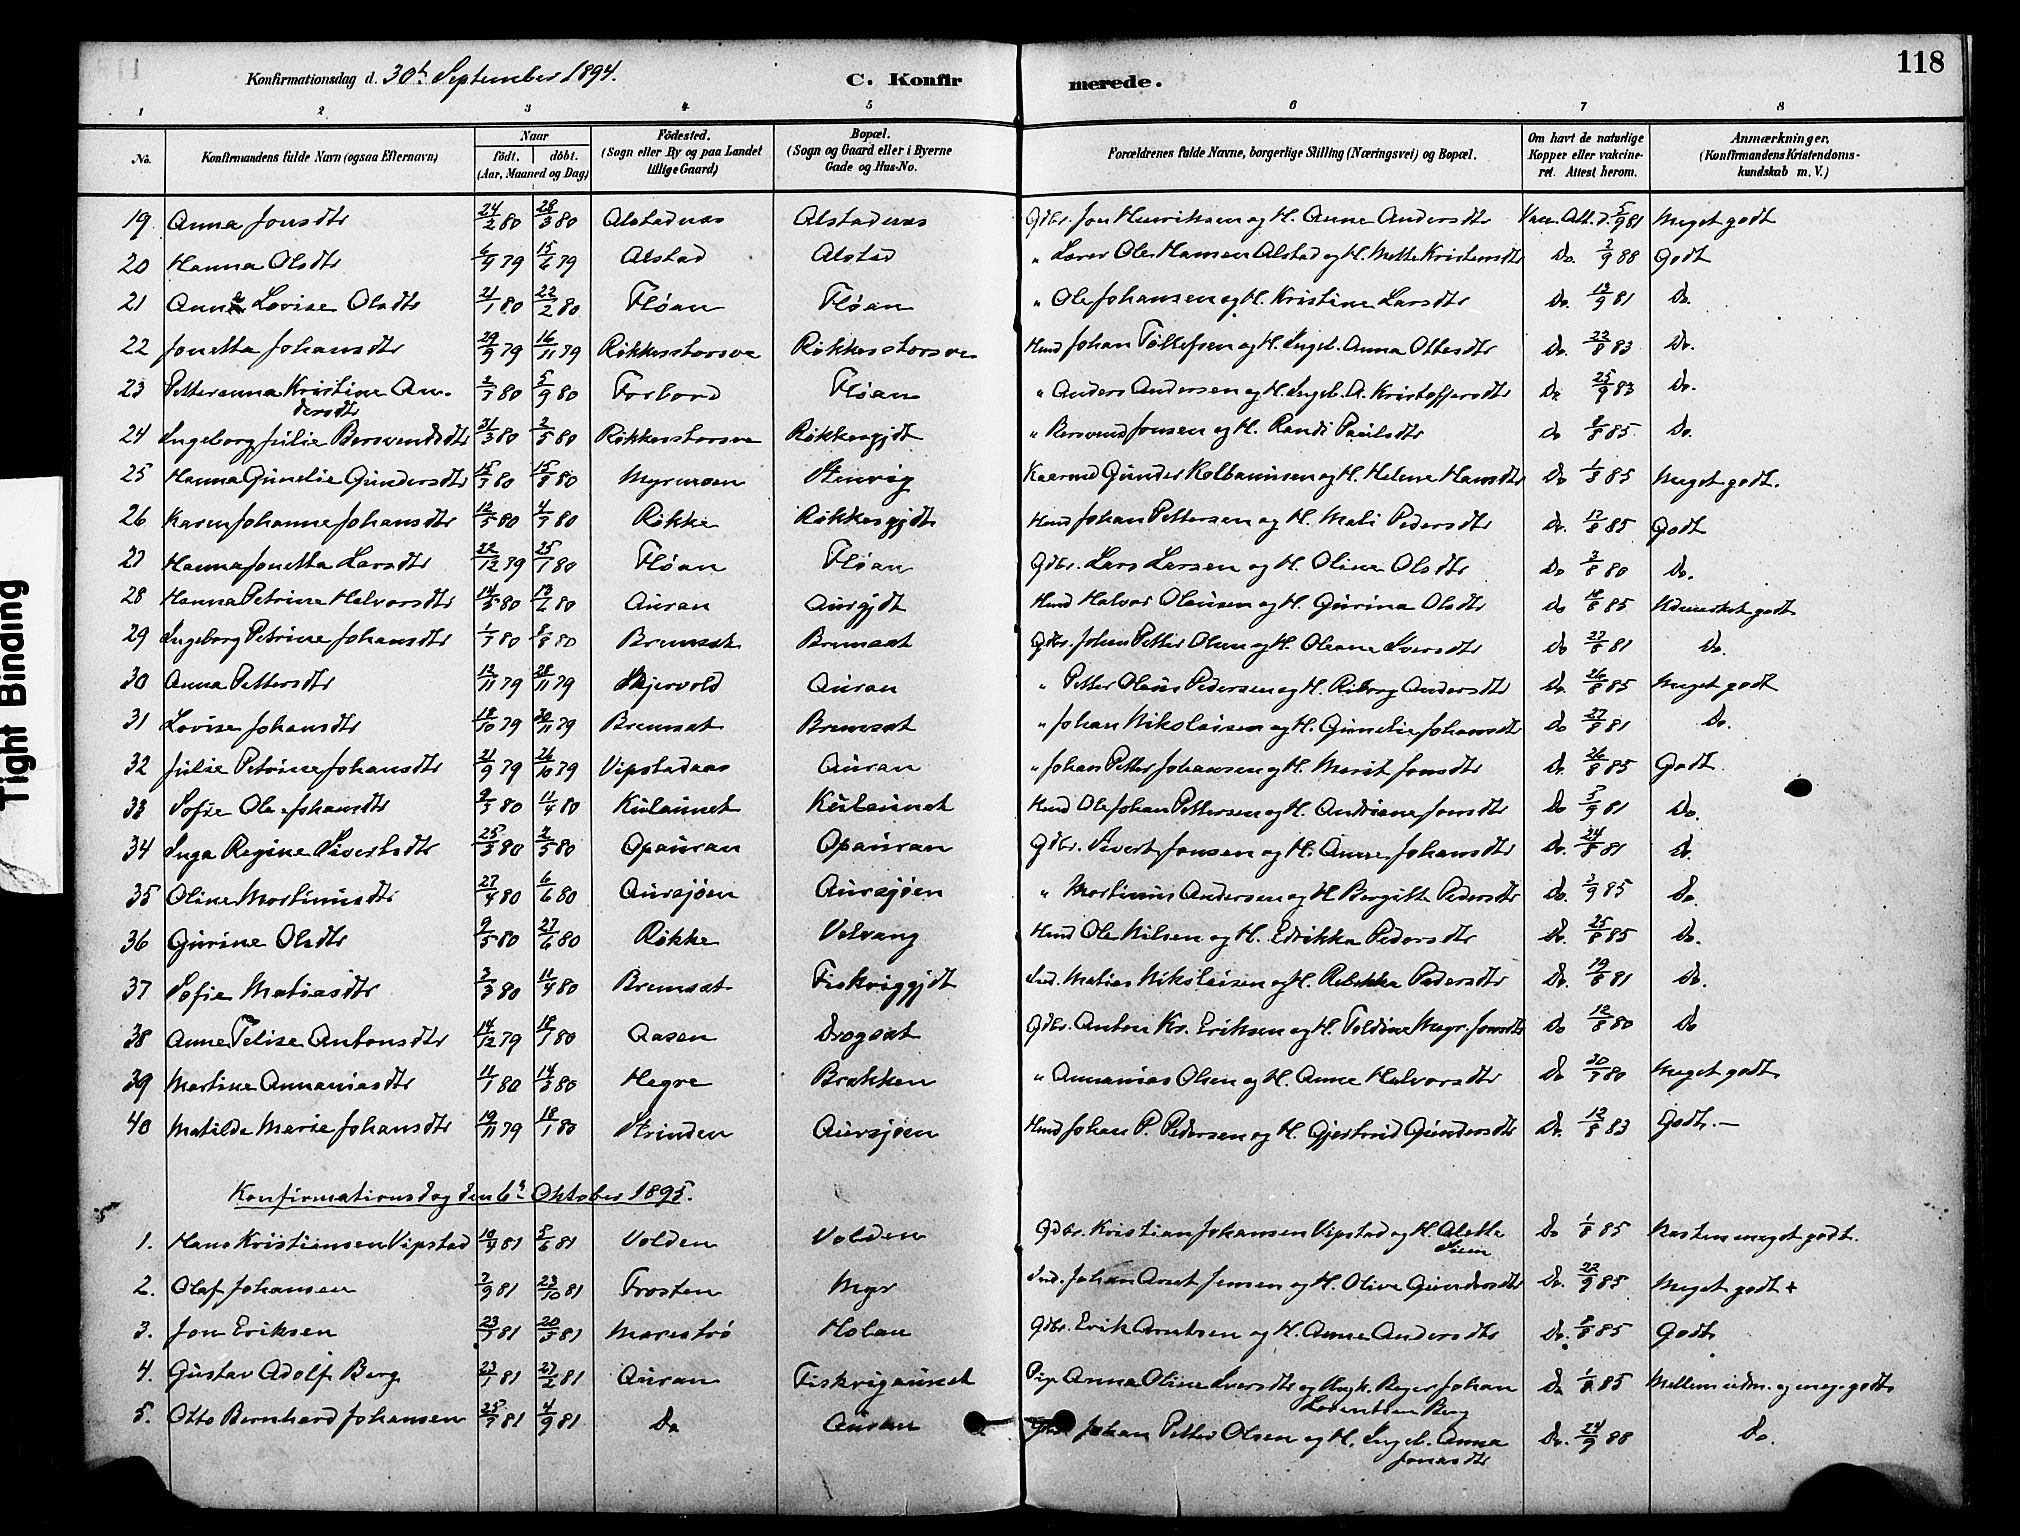 118
Konfirmationsdag d. 30te September 1894. C. Konfir merede.
1 2 3 4 5 6 7 8
No. Konfirmandens fulde Navn (ogsaa Efternavn) Naar födt. döbt. (Aar, Maaned og Dag) Födested. (Sogn eller By og paa Landet tillige Gaard) Bopæl. (Sogn og Gaard eller i Byerne Gade og Hus-No. Forældrenes fulde Navne, borgerlige Stilling (Næringsvei) og Bopæl. Om havt de naturlige Kopper eller vakcineret. Attest herom. Anmærkninger, (Konfirmandens Kristendomskundskab m. V.)
19 Anna Jonsdtr 24/2 80 28/3 80 Alstadnas Alstadnas Gdbr. Jon Henriksen og H. Anne Andersdtr Vacc. Att. d. 5/9 81 Meget godt
20 Hanna Olsdtr 6/4 79 15/6 79 Alstad Alstad " Lærer Ole Hansen Alstad og H. Mette Kristensdtr Do. 2/9 88 Godt
21 Anna Lovise Olsdtr 21/1 80 22/2 80 Fløan Fløan " Ole Johansen og H. Kristine Larsdtr Do. 13/9 81 Do.
22 Jonetta Johansdtr 29/9 79 16/11 79 Røkkesstorsve Røkkesstorsve Hmd Johan Tollefsen og H. Ingeb. Anna Ottesdtr Do. 22/8 83 Do.
23 Petteranna Kristine Andersdtr 2/7 80 5/9 80 Forbord Fløan " Anders Andersen og H. Ingeb. A. Kristoffersdtr Do 25/9 83 Do.
24 Ingeborg Julie Bersvendsdtr 31/3 80 2/5 80 Røkkesstorsve Røkkesgjdt " Bersvend Jonsen og H. Randi Paulsdtr Do 8/8 85 Do.
25 Hanna Gunelie Gundersdtr 15/7 80 15/8 80 Myrmoen Stenvig Kaarmd Gunder Kolbanusen og H. Helene Hansdtr Do 1/8 85 Meget godt.
26 Karen Johanne Johansdtr 12/5 80 4/7 80 Røkke Røkkesgjdt Hmd Johan Pettersen og H. Mali Pedersdtr Do. 12/8 85 Godt
27 Hanna Jonetta Larsdtr 22/12 79 25/1 80 Fløan Fløan Gdbr. Lars Larsen og H. Oline Olsdtr Do 3/8 80 Do.
28 Hanna Petrine Halvorsdtr 14/5 80 13/6 80 Auran Aurgjdt Hmd Halvor Olausen og H. Gurina Olsdtr Do 18/8 85 Udmerket godt
29 Ingeborg Petrine Johansdtr 1/7 80 8/8 80 Bremset Bremset Gdbr. Johan Petter Olsen og H. Oleane Iversdtr Do 27/8 81 Do.
30 Anna Pettersdtr 13/11 79 28/11 79 Skjervold Auran " Petter Olaus Pedersen og H. Riborg Andersdtr Do. 26/8 85 Meget godt
31 Lovise Johansdtr 18/10 79 30/11 79 Bremset Bremset " Johan Nikolaisen og H. Gunelie Johansdtr Do 27/8 81 Do.
32 Julie Petrine Johansdtr 21/9 79 26/10 79 Vipstadaas Auran " Johan Petter Johansen og H. Marit Jonsdtr Do. 26/8 85 Godt
33 Sofie Ole-Johansdtr 9/3 80 11/4 80 Kulaunet Kulaunet Hmd Ole Johan Pettersen og H. Andriane Jonsdtr Do 5/9 81 Do.
34 Inga Regine Sivertsdtr 25/3 80 2/5 80 Opauran Opauran Gdbr. Sivert Jonsen og H. Anne Johansdtr Do. 24/8 81 Do.
35 Oline Martinusdtr 27/4 80 6/6 80 Aursjøen Aursjøen " Martinus Andersen og H Bergitte Pedersdtr Do. 2/9 85 Do.
36 Gurine Olsdtr 9/5 80 27/6 80 Røkke Velvang Hmd Ole Nilsen og H. Edrikka Pedersdtr Do. 25/8 85 Do.
37 Sofie Matiasdtr 3/3 80 11/4 80 Bremset Fiskviggjdt Ind. Matias Nikolaisen og H. Rebekka Pedersdtr Do. 19/8 81 Do.
38 Anne Felise Antonsdtr 14/12 79 18/1 80 Aasen Drogset Gdbr. Anton Kr. Eriksen og H. Toldine Marg. Jonsdtr Do 12/8 80 Do
39 Martine Annaniasdtr 11/1 80 14/3 80 Hegre Brækken " Annanias Olsen og H. Anne Halvorsdtr Do 30/7 80 Meget godt
40 Matilde Marie Johansdtr 19/11 79 18/1 80 Strinden Aursjøen Hmd Johan P. Pedersen og H. Gjertrud Gundersdtr Do. 12/8 83 Godt. —
Konfirmationsdag den 6te Oktober 1895.
1. Hans Kristiansen Vipstad 10/4 81 8/6 81 Volden Volden Gdbr. Kristian Johansen Vipstad og H. Aletta Siem Do 1/8 85 Næsten meget godt.
2. Olaf Johansen 7/9 81 23/10 81 Frosten Myr Ind. Johan Arnt Jensen og H. Olive Gundersdtr Do. 22/9 85 Meget godt +
3. Jon Eriksen 23/3 81 20/3 81 Marestrø Holan Gdbr. Erik Arntsen og H. Anne Andersdtr Do. 8/8 85 Godt
4. Gustav Adolf Berg 23/1 81 27/2 81 Auran Fiskvigaunet Pige Anna Oline Iversdtr og Ungk. Beyer Johan Lorentsen Berg Do 1/8 85 Mellem udm. og meg. godt
5. Otto Bernhard Johansen 25/7 81 4/9 81 Do Auran Gdbr. Johan Petter Olsen og H. Ingeb. Anna Jonasdtr Do. 24/9 88 Do.
Tight Binding